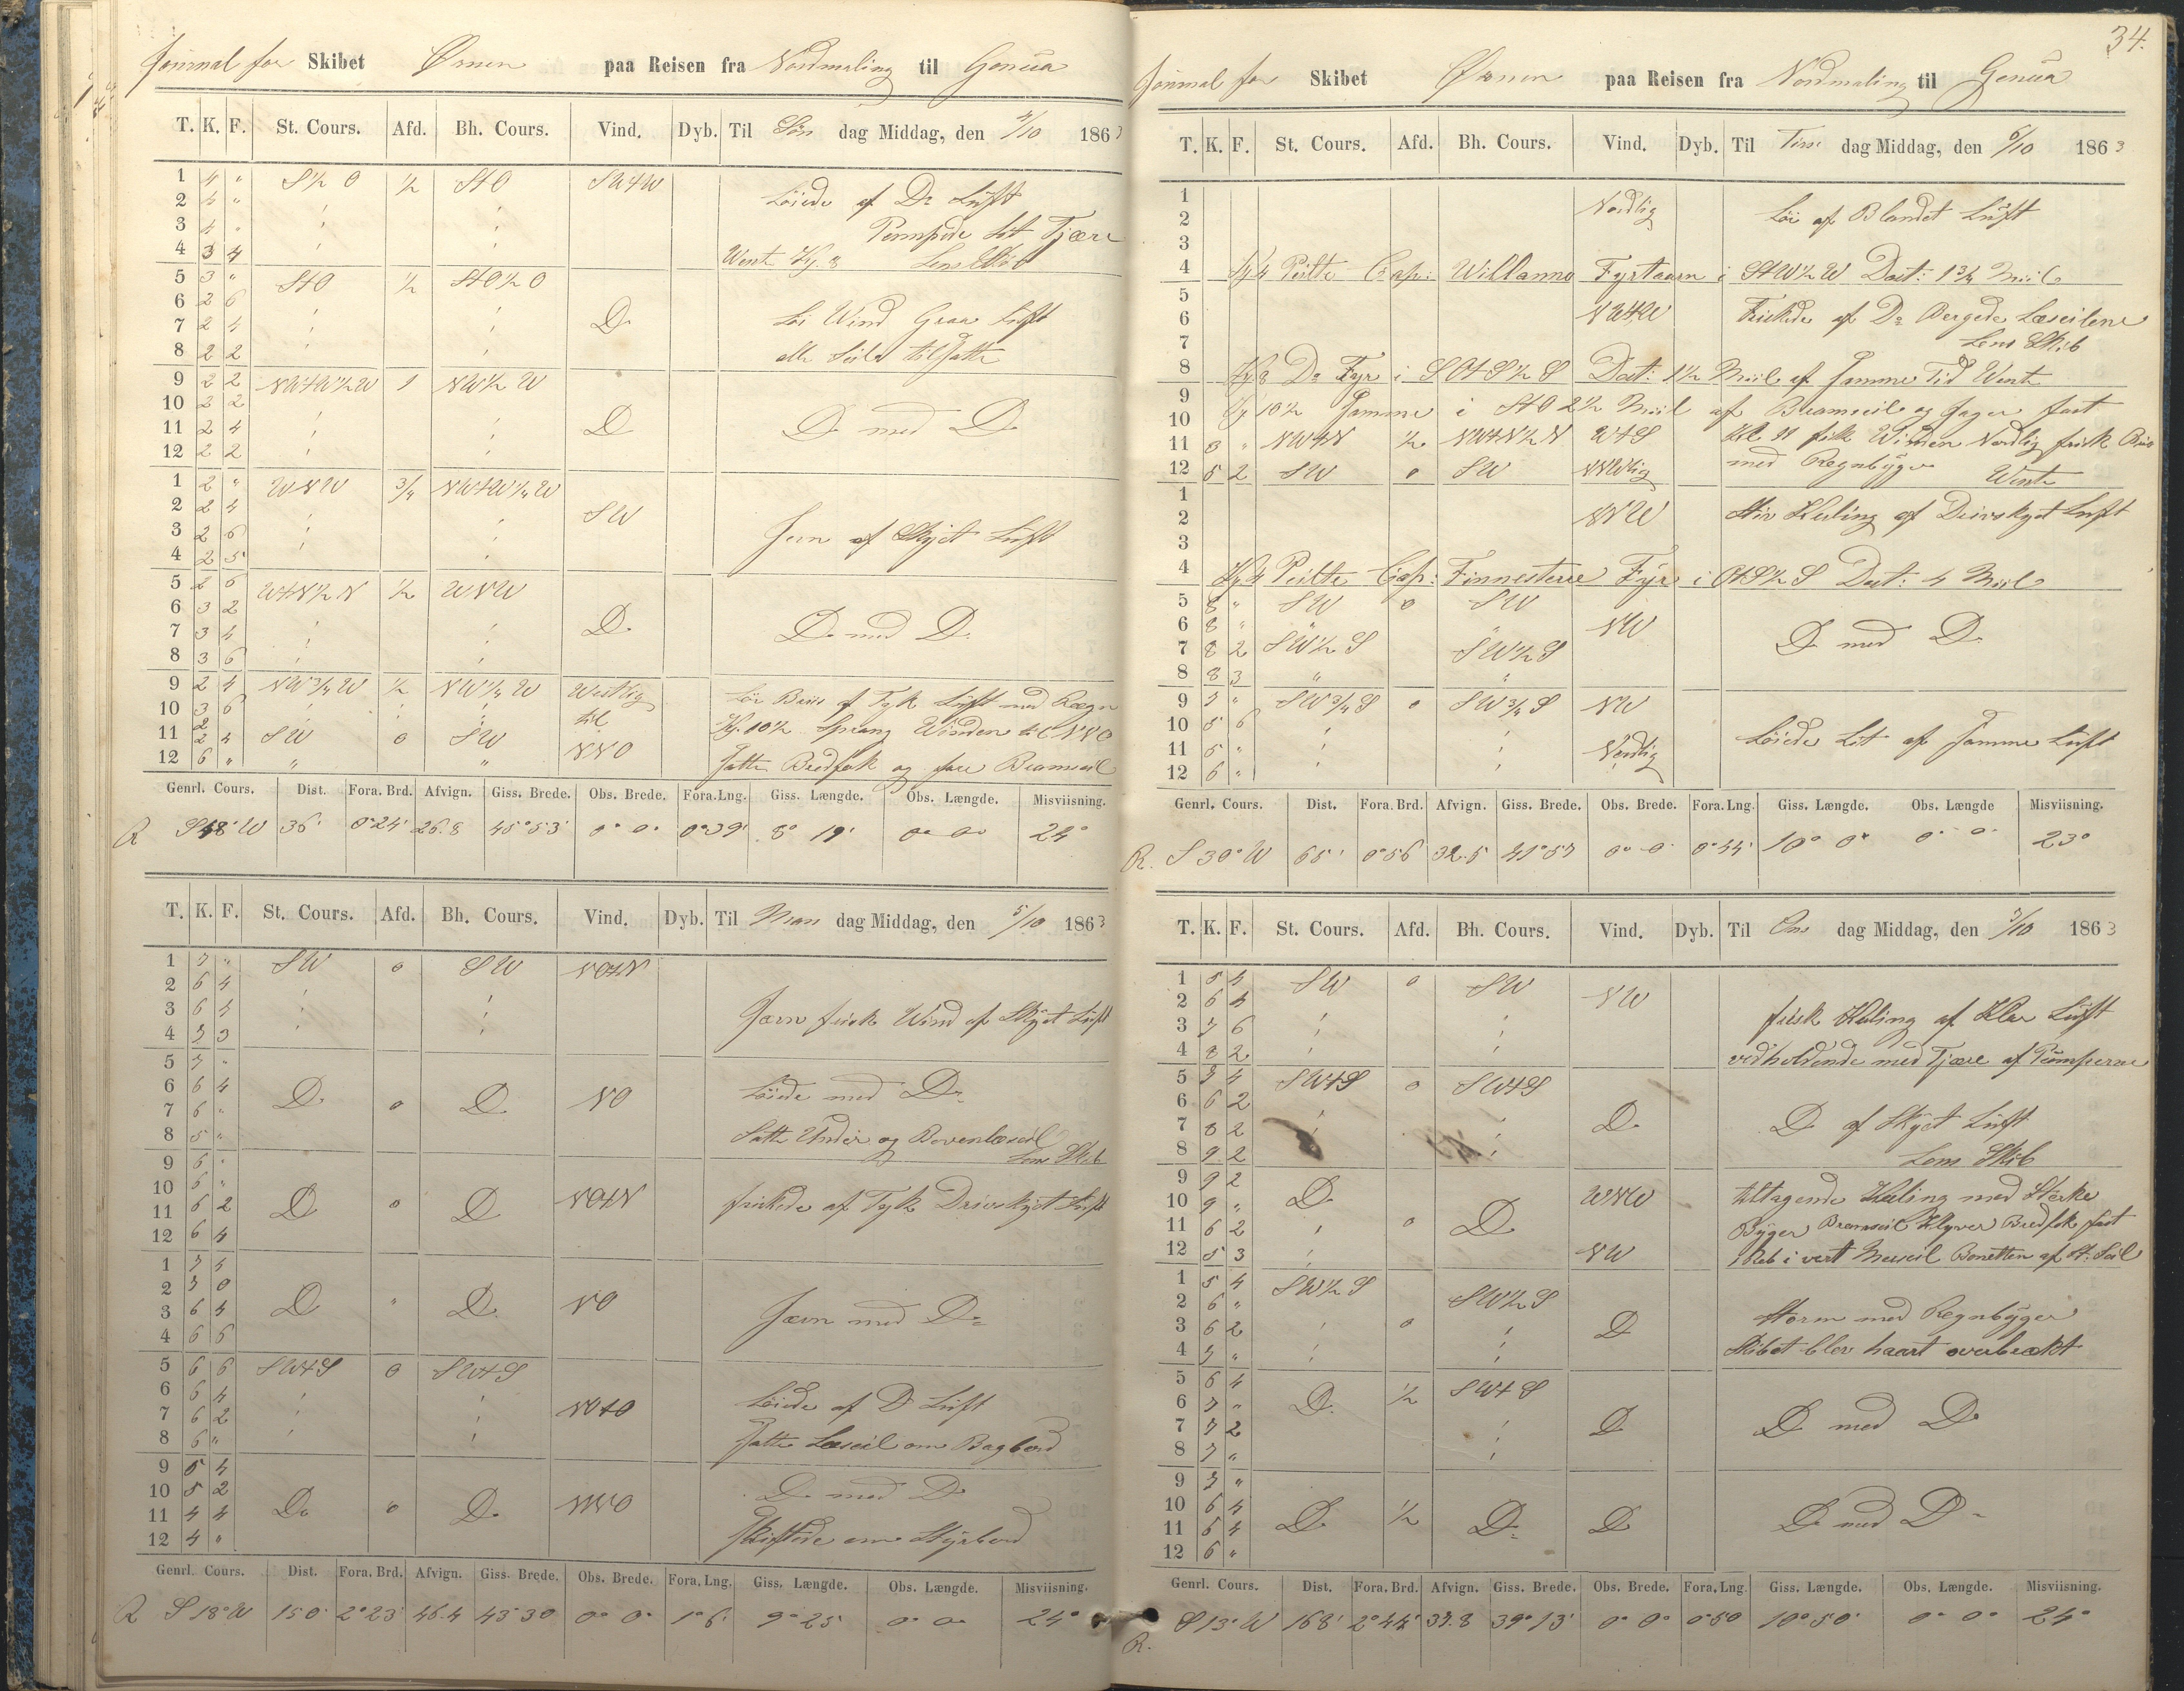 Journal for Skibet Ørnen paa Reisen fra Nordmaling til Genua
T. K. F. St. Cours. Afd. Bh. Cours. Vind. Dyb. Til Søn dag Middag, den 4/10 1863
1 4 " S½O ½ StO SWtW
2 4 " Løiede af Do Luft
3 4 " Pompede lit Tjære
4 3 4 Wente Kl. 8 Lens Skib
5 3 " StO ½ StO½O
6 2 6 Løi Wind Graa Luft
7 2 4 Do
8 2 2 alle Seile tilsatte
9 2 2 NWtW½W 1 NW½W
10 2 2
11 2 4 Do Do med Do
12 2 2
1 2 " WNW ¾ NWtW¼W
2 2 4 SW
3 2 6 Jevn af Skyet Luft
4 2 5
5 2 6 WtN½N ½ WNW
6 3 2
7 3 4 Do Do med Do
8 3 6
9 2 4 NW¾W ½ NW¼W Westlig Løi Briis af Tyk Luft med Rægn
10 3 6 til Kl. 10½ Sprang Winden til NNO
11 2 4 SW 0 SW
12 6 " " " NNO Satte Bredfok og fore Bramseil
Genrl. Cours. Dist. Fora. Brd. Afvign. Giss. Brede. Obs. Brede. Fora. Lng. Giss. Længde. Obs. Længde. Misviisning.
R S48°W 36' 0°24' 26.8 45°53' 0° 0' 0°39' 8° 19' 0° 0' 24°
T. K. F. St. Cours. Afd. Bh. Cours. Vind. Dyb. Til Man dag Middag, den 5/10 1863
1 7 " SW 0 SW NOtN
2 6 4
3 6 4 Jævn frisk Wind af Skyet Luft
4 7 3
5 7 "
6 6 4 Do 0 Do NO Løiede med Do
7 6 "
8 5 " Satte Under og Bovenlæseil
9 6 " Lens Skib
10 6 "
11 6 2 Do 0 Do NOtN friskede af Tyk Drivskyet Luft
12 6 4
1 7 5
2 7 0
3 6 4 Do " Do NO Jævn med Do
4 6 6
5 6 6 SWtS 0 SWtS
6 6 4 Løiede af Do Luft
7 6 2 NOtO
8 6 " Satte Læseil om Bagbord
9 5 4
10 5 2 Do med Do
11 4 4 Do 0 Do NNO
12 4 " Skiftede om Styrbord
Genrl. Cours. Dist. Fora. Brd. Afvign. Giss. Brede. Obs. Brede. Fora. Lng. Giss. Længde. Obs. Længde. Misviisning.
R S18°W 150' 2°23' 46.4 43°30 0° 0' 1°6' 9° 25' 0° 0' 24°
34.
Journal for Skibet Ørnen paa Reisen fra Nordmaling til Genua
T. K. F. St. Cours. Afd. Bh. Cours. Vind. Dyb. Til Tirs dag Middag, den 6/10 1863
1 Nordlig Løi af Blandet Luft
2
3
4 Kl 4 Peilte Cap: Willanno Fyrtaarn i StW½W Dist: 1¾ Miil
5
6 NWtW Friskede af Do Bergede Læseilene
7 Lens Skib
8 Kl 8 Do Fyr i SOtS½S Dist: 1½ Miil af Samme Tid Wente
9 Kl 10½ Samme i StO 2½ Miil af Bramseil og Jager fast
10
11 3 " NWtN ½ NWtN½N WtS Kl. 11 fik Winden Nordlig frisk Briis
12 5 2 SW 0 SW NNWlig med Regnbyger Wente
1
2 NNW Stiv Kuling af Drivskyet Luft
3
4 Kl 4 Peilte Cap: Finnesterre Fyr i OtS½S Dist: 4 Miil
5 8 " SW 0 SW
6 8 " " " NW
7 8 2 SW½S SW½S Do med Do
8 8 3 " "
9 7 " SW¾S 0 SW¾S NW
10 5 6
11 5 " Nordlig Løiede Lit af Samme Luft
12 6 "
Genrl. Cours. Dist. Fora. Brd. Afvign. Giss. Brede. Obs. Brede. Fora. Lng. Giss. Længde. Obs. Længde Misviisning.
R. S30°W 65' 0°56 32.5 41°57 0° 0' 0°44' 10° 0' 0° 0' 23°
T. K. F. St. Cours. Afd. Bh. Cours. Vind. Dyb. Til Ons dag Middag, den 7/10 1863
1 5 4 SW 0 SW
2 6 4 NW
3 7 6 frisk Kuling af Klar Luft
4 8 2 vedholdende med Tjære af Pomperne
5 7 4 SWtS 0 SWtS
6 6 2
7 8 2 Do Do af Skyet Luft
8 9 2 Lens Skib
9 9 2 Do WNW tiltagende Kuling med Stærke
10 9 " 0 Do
11 6 2 Byger Bramseil Klyver Bredfok fast
12 5 3 NW 1 Reb i vert Merseil Bonetten af St. Seil
1 5 4 SW½S SW½S
2 6 " Storm med Regnbyger
3 6 2 0 Do
4 7 " Skibet blev haart overbrækt
5 6 4 Do ½ SWtS
6 7 "
7 7 2 Do Do med Do
8 7 "
9 7 "
10 6 4
11 6 4 Do ½ Do Do Do med Do
12 6 "
Genrl. Cours. Dist. Fora. Brd. Afvign. Giss. Brede. Obs. Brede. Fora. Lng. Giss. Længde. Obs. Længde. Misviisning.
R. S13°W 168' 2°44' 37.8 39°13' 0° 0' 0°50 10°50' 0° 0' 24°